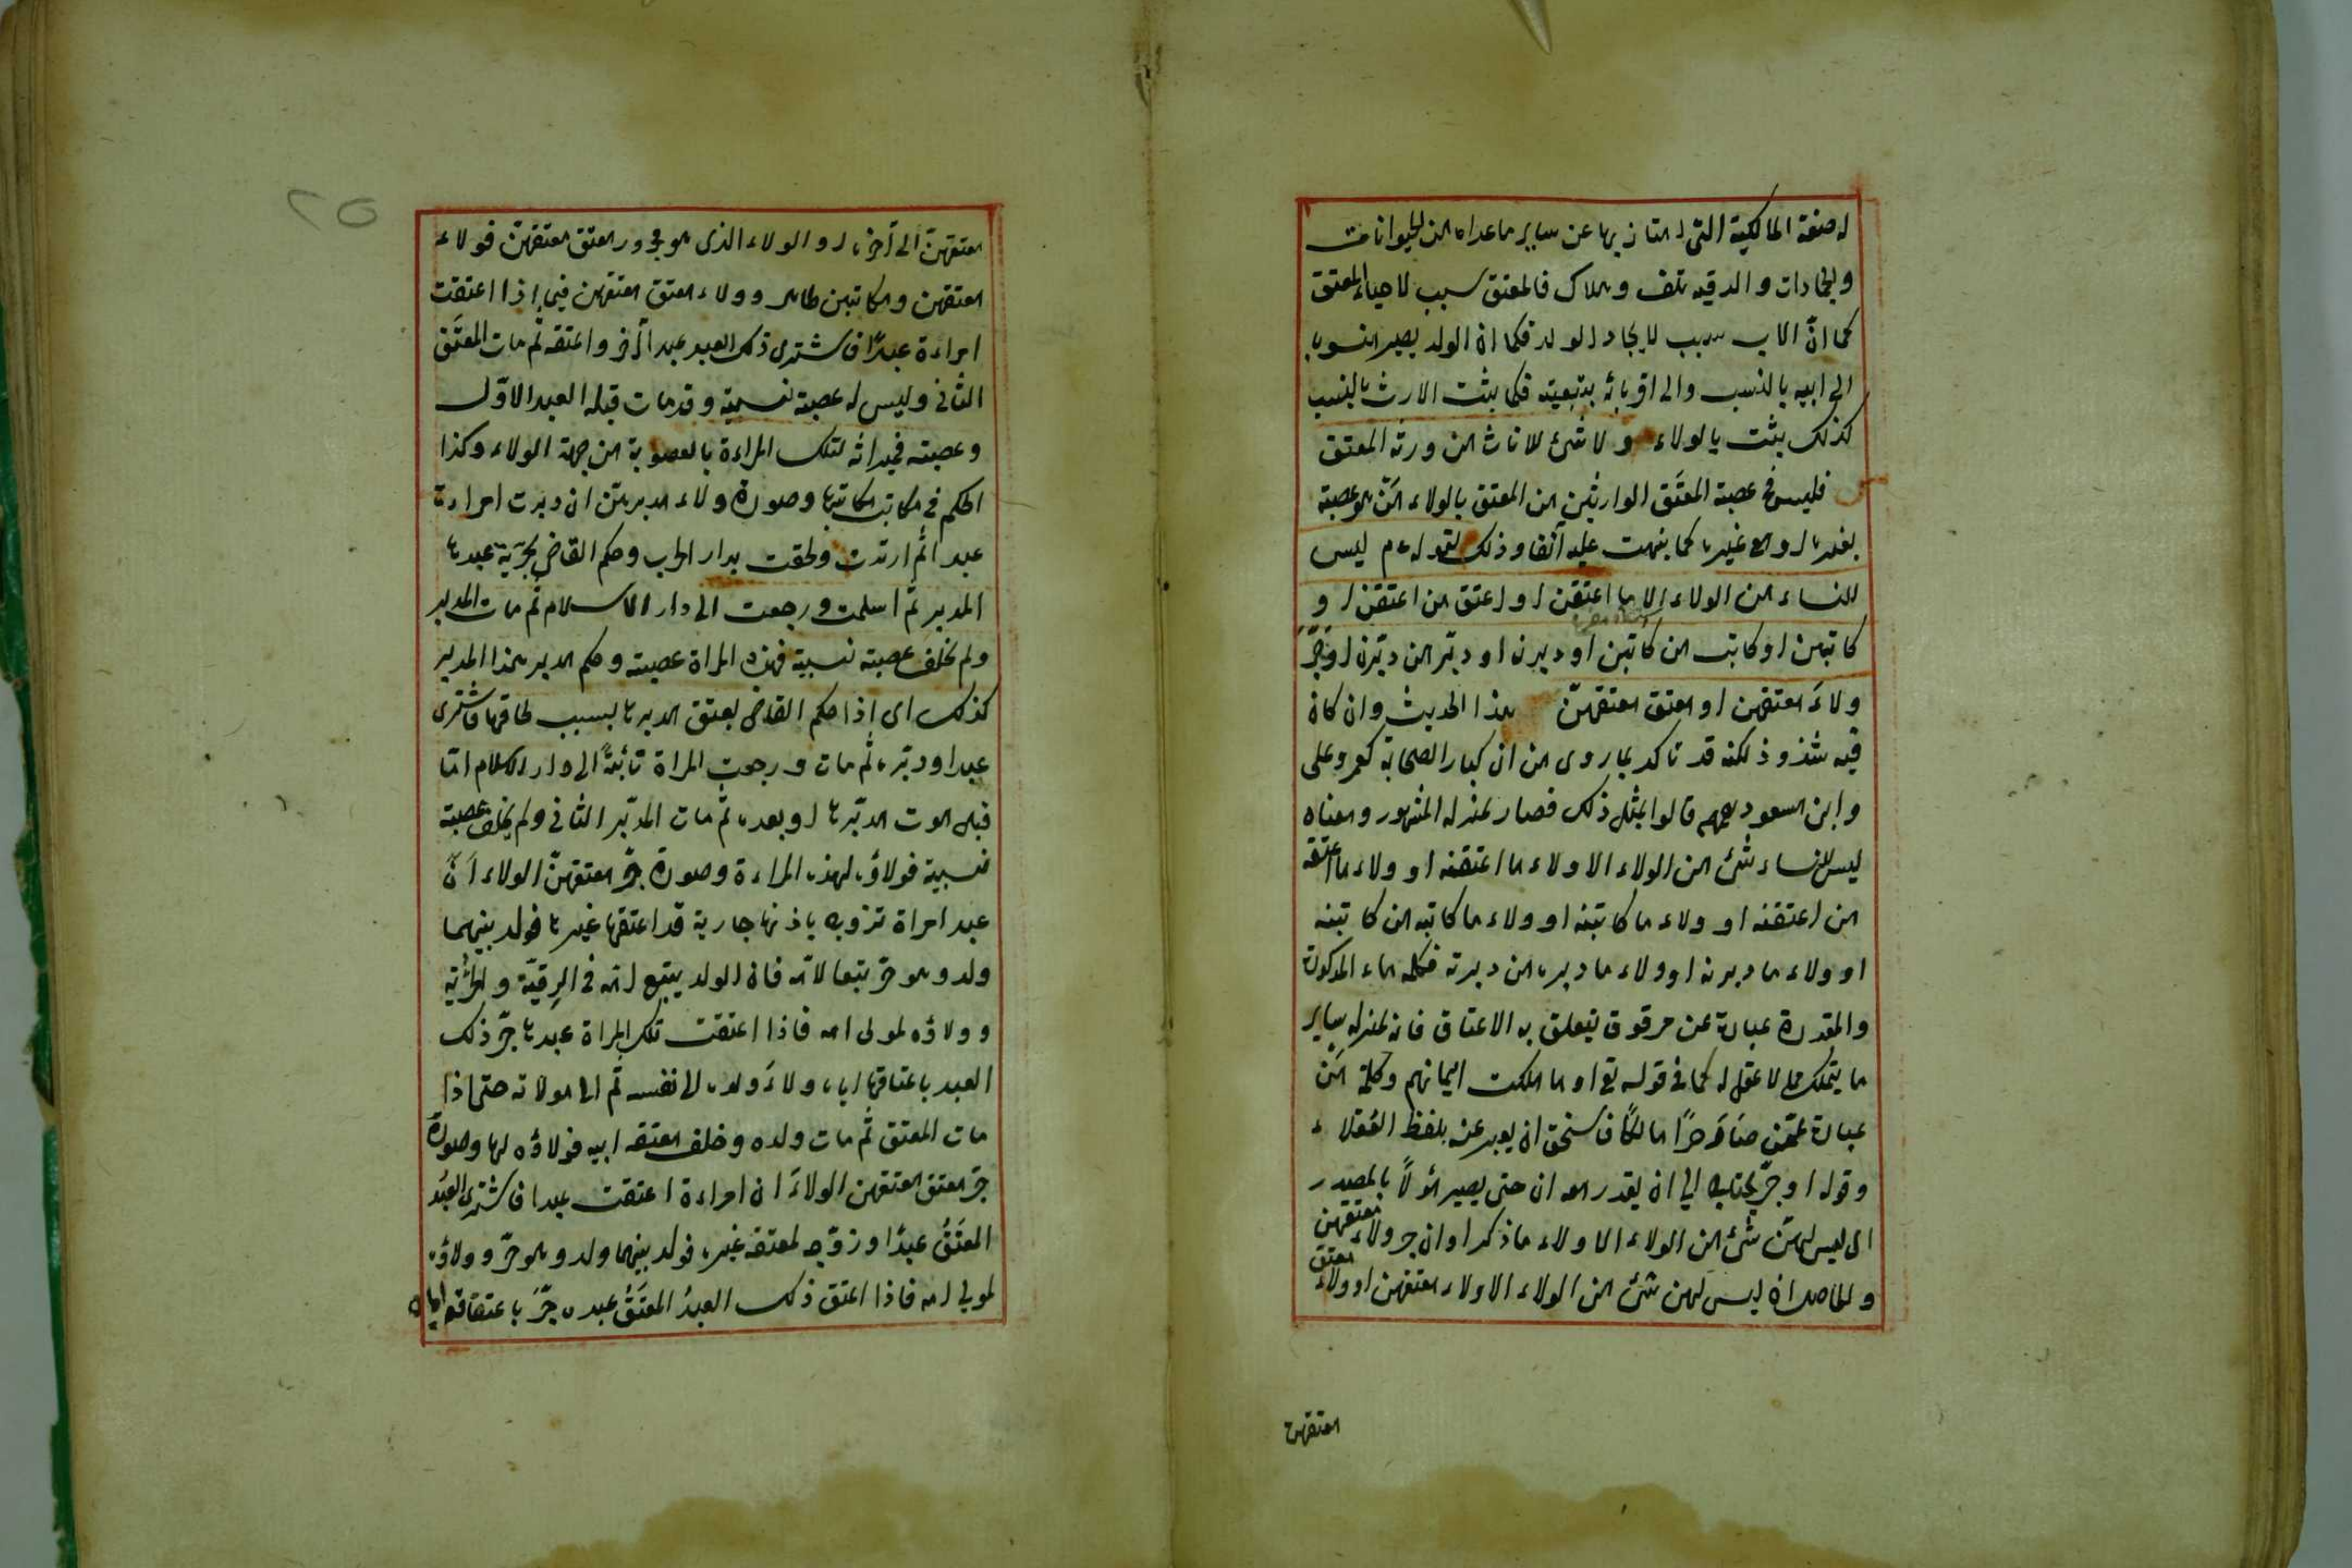 له صفة المالكية التى امتاز بها عن ساير ما عداه من الحيوانات
والجمادات والرقيه تلف وهلاك فالمعتق سبب لاحياء المعتق
كما انّ الاب سبب لايجاد الولد فكما ان الولد يصير منسوبا
الى ابيه بالنسب والى اقربائه بتبعيته فكما يثبت الارث بالنسب
كذلك يثبت بالولاء ولا شئ للاناث من ورثة المعتق
فليس فى عصبة المعتَق الوارثين من المعتق بالولاء مَنْ هو عصبة
بغيره او مع غيره كما نبهت عليه آنفا وذلك لقوله عم ليس
للنساء من الولاء الا ما اعتقن او اعتق من اعتقن او
كاتبن او كاتب من كاتبن او دبرن او دبّر من دبّرن او جَرَّ
ولاءَ معتقهن او معتق معتقهنّ هذا الحديث وان كان
فيه شذوذ لكنه قد تاكد بما روى من ان كبار الصحابة كعمر وعلى
وابن مسعود رضهم قالوا بمثل ذلك فصار بمنزلة المشهور ومعناه
ليس للنساء شئ من الولاء الا ولاء ما اعتقنه او ولاء ما اعتقه
من اعتقنه او ولاء ما كاتبنه او ولاء ما كاتبه من كاتبنه
او ولاء ما دبرنه او ولاء ما دبره من دبرنه فكلمة ماء المذكورة
والمقدرة عبارة عن مرقوق يتعلق به الاعتاق فانه بمنزلة ساير
ما يتملك مما لا عقل له كما فى قوله تع او ما ملكت ايمانهم وكلمة مَنْ
عبارة عمّن صارَ حرًا مالكًا فاستحق ان يعبر عنه بلفظ العُقلاء
وقوله او جرّ يحتاج الى ان يقدر معه ان حتى يصير مؤلاً بالمصدر
اى ليس لهنّ شئ من الولاء الا ولاء ما ذكر او ان جر ولاء معتقهن
والحاصل ان ليس لهن شئ من الولاء الا ولاء معتقهن او ولاء معتق
معتقهن
٢٥
معتقهنّ الى آخره او الولاء الذى هو مجرور معتق معتقهنّ فولاء
معتقهن ومكاتبهن ظاهر وولاء معتق معتقهن فيما اذا اعتقت
امراءة عبدًا فاشترى ذلك العبد عبدا آخر واعتقه ثم مات المعتَق
الثانى وليس له عصبة نسبية وقد مات قبله العبد الاوّل
وعصبته فميراثه لتلك المراءة بالعصوبة من جهة الولاء وكذا
الحكم فى مكاتب مكاتبها وصورة ولاء مدبرهن ان دبرت امراءة
عبدا ثم ارتدت ولحقت بدار الحرب وحكم القاضى بحرّية عبدها
المدبر ثم اسلمت ورجعت الى دار الاسلام ثم مات المدبر
ولم يخلف عصبة نسبية فهذه المراة عصبته وحكم مدبر هذا المدبر
كذلك اى اذا حكم القاضى بعتق مدبرها بسبب لحاقها فاشترى
عبدا ودبّره ثم مات ورجعت المراة تائبةً الى دار الاسلام امّا
قبل موت مدبّرها او بعده ثم مات المدبّر الثانى ولم يخلف عصبة
نسبية فولاؤه لهذه المراءة وصورة جرّ معتقهنّ الولاء انّ
عبد امراة تزوج باذنها جارية قد اعتقها غيرها فولد بينهما
ولد وهو حرّ تبعا لامّه فان الولد يتبع امّه فى الرقيّة والحُرّية
وولاؤه لمولى امه فاذا اعتقت تلك المراة عبدها جرّ ذلك
العبد باعتاقها اياه ولاءَ ولده الى نفسه ثم الى مولاته حتى اذا
مات المعتق ثم مات ولده وخلف معتقة ابيه فولاؤه لها وصورة
جرّ معتق معتقهن الولاءَ ان امراءة اعتقت عبدا فاشترى العبُد
المعتَقُ عبدًا وزوّجه لمعتقة غيره فولد بينهما ولد وهو حرّ وولاؤه
لمولى امه فاذا اعتق ذلك العبدُ المعتَقُ عبده جرَّ باعتقاقه اياه